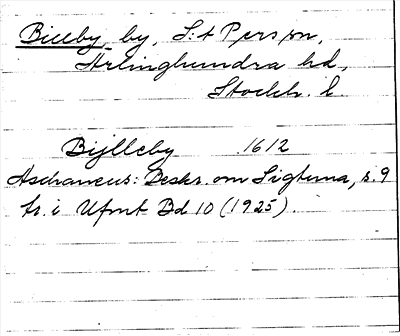 Billby, by, S:t Pers sn,
Ärlinghundra hd,
Stockh. l
Bijlleby 1612
Aschaneus: Beskr. om Sigtuna, s. 9
tr. i Ufmt Bd 10 (1925).